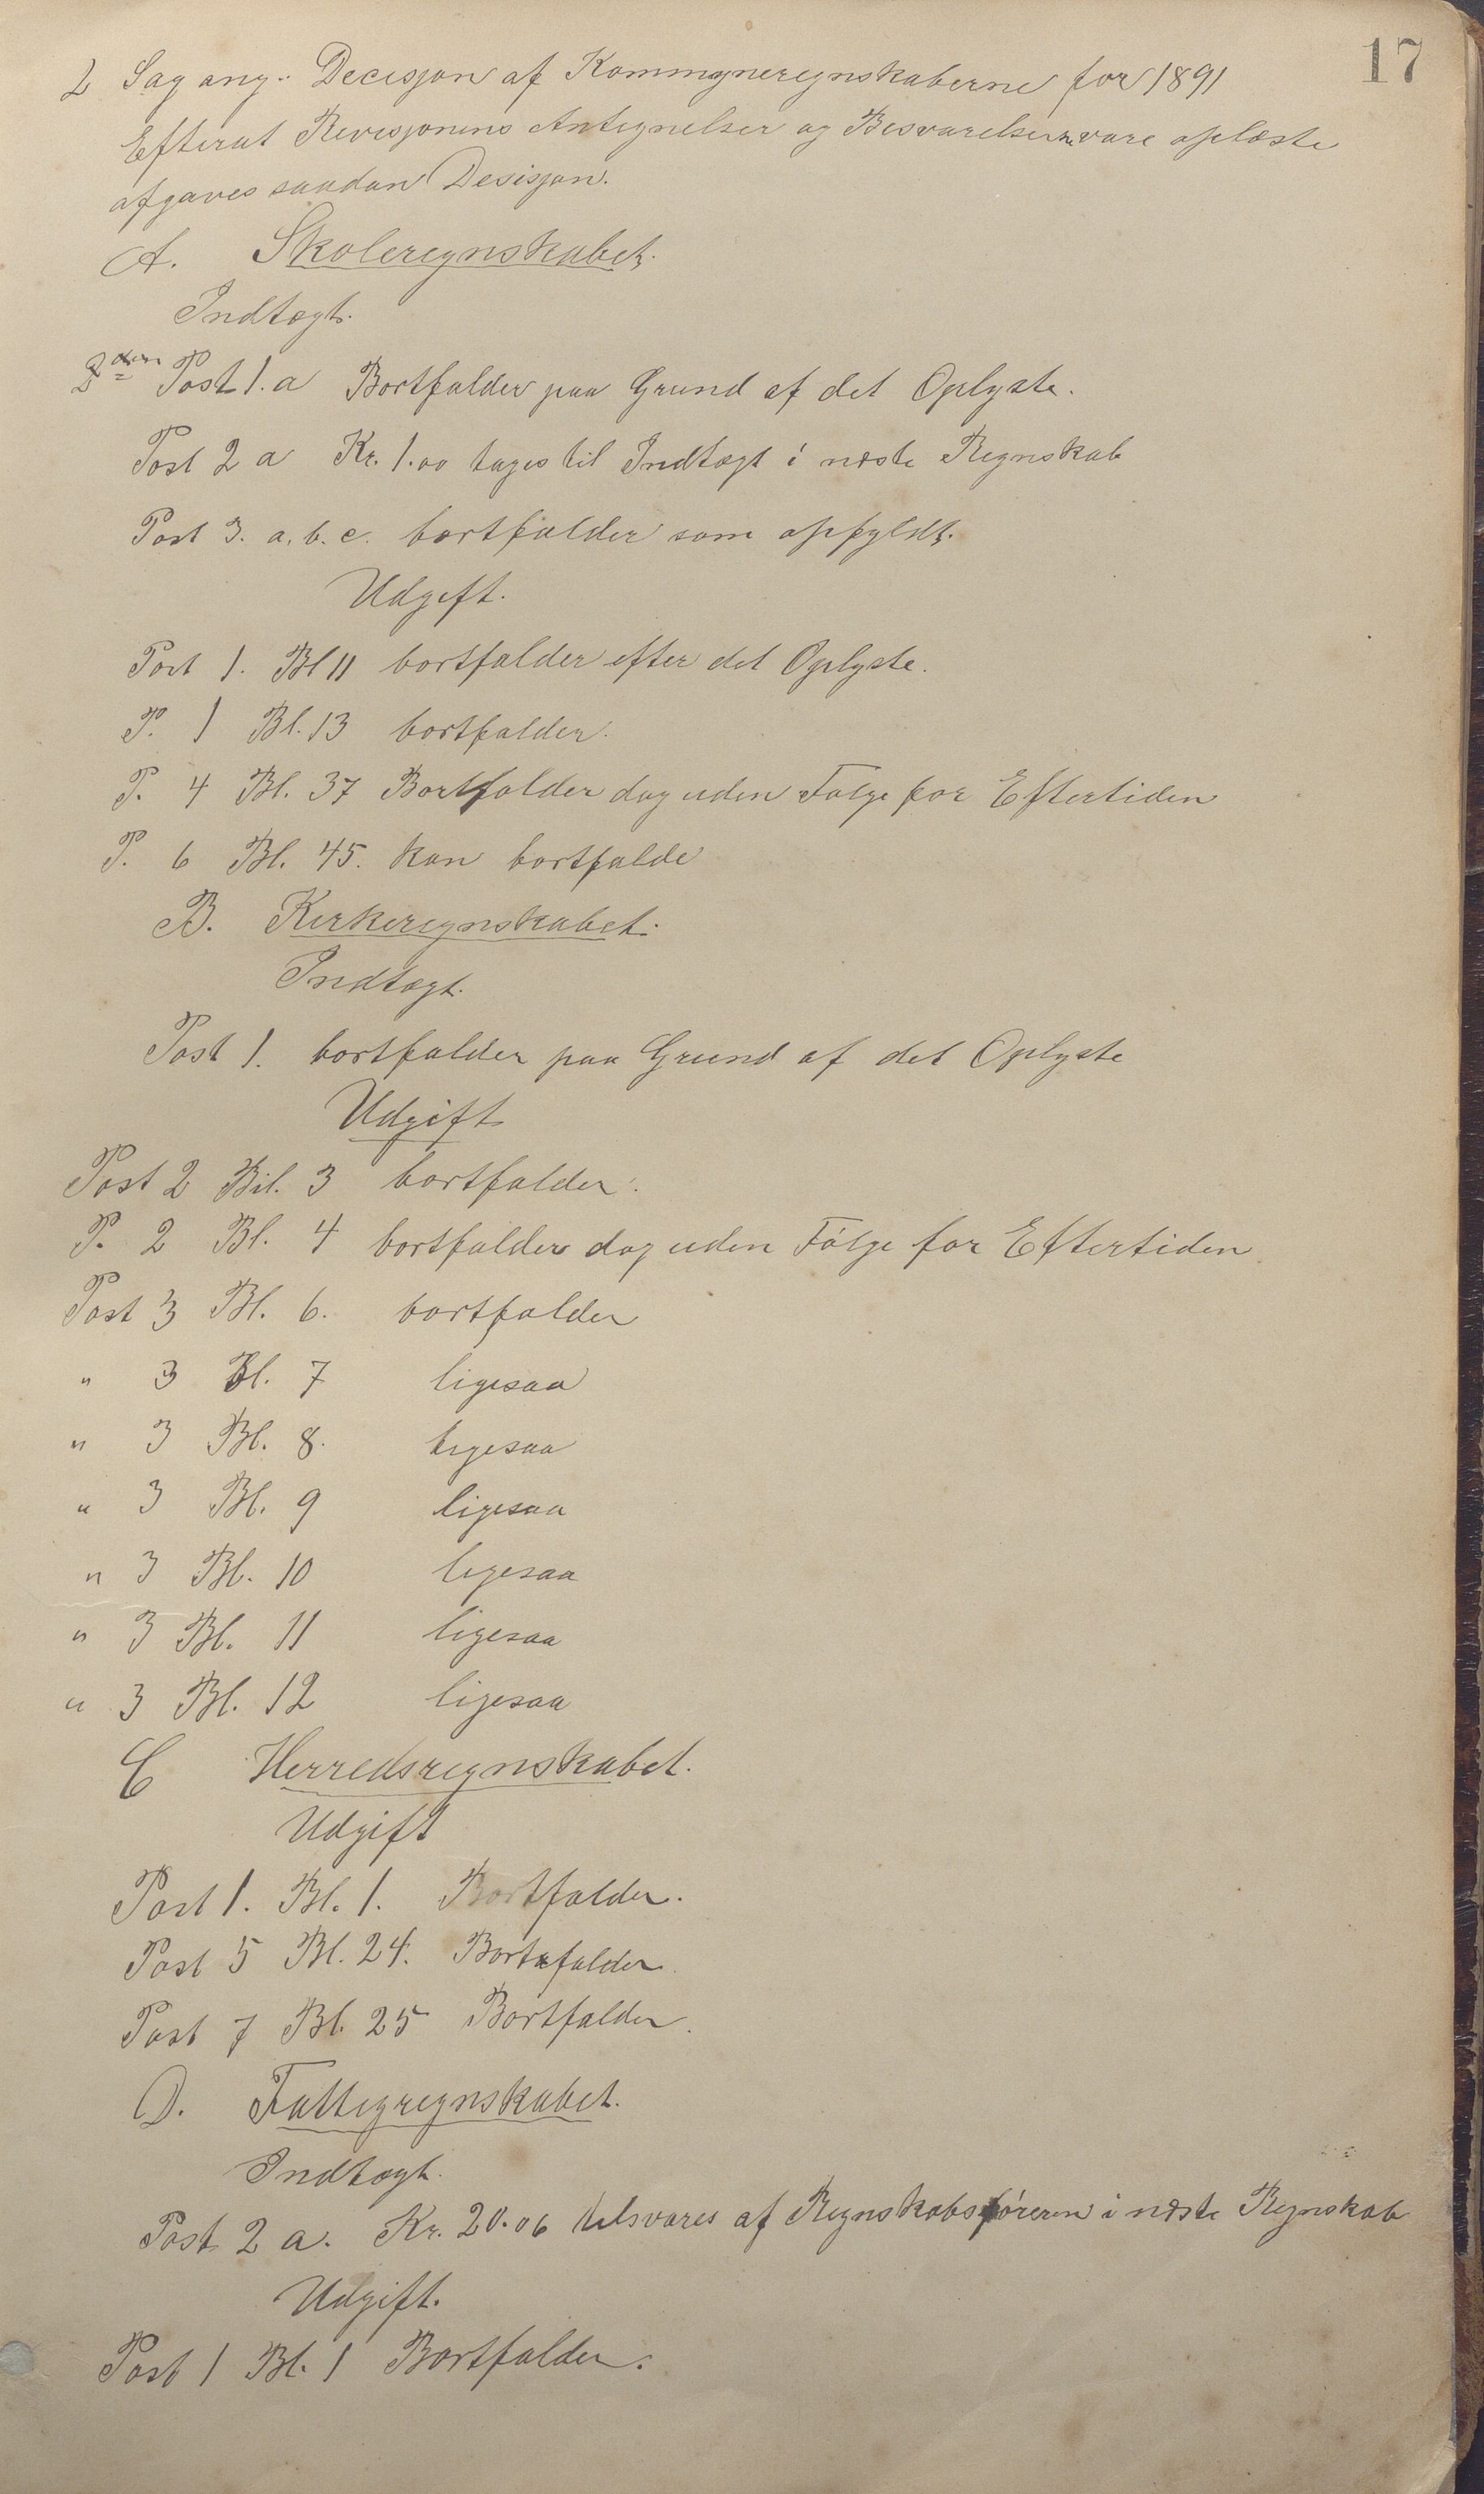 17
2 Sag ang. Decisjon af Kommuneregnskaberne for 1891
Efterat Revisjonens Antegnelser og Besvarelserne vare oplæste
afgaves saadan Desisjon.
A. Skoleregnskabet.
Indtægt.
Post 1. a Bortfalder paa Grund af det Oplyste.
Post 2 a Kr. 1.00 tages til Indtægt i næste Regnskab
Post 3. a. b. c. bortfalder som opfyldt.
Udgift.
Post 1. Bl 11 bortfalder efter det Oplyste.
P. 1 Bl. 13 bortfalder.
P. 4 Bl. 37 Bortfalder dog uden Følge for Eftertiden
P. 6 Bl. 45. kan bortfalde
B. Kirkeregnskabet.
Indtægt.
Post 1. bortfalder paa Grund af det Oplyste
Udgift
Post 2 Bil. 3 bortfalder.
P. 2 Bl. 4 bortfalder dog uden Følge for Eftertiden
Post 3 Bl. 6. bortfalder
" 3 Bl. 7 ligesaa
" 3 Bl. 8. ligesaa
" 3 Bl. 9 ligesaa
" 3 Bl. 10 ligesaa
" 3 Bl. 11 ligesaa
" 3 Bl. 12 ligesaa
C Herredsregnskabet.
Udgift
Post 1. Bl. 1. Bortfalder.
Post 5 Bl. 24. Bortfalder.
Post 7 Bl. 25 Bortfalder.
D. Fattigregnskabet.
Indtægt.
Post 2 a. Kr. 20.06 tilsvares af Regnskabsføreren i næste Regnskab
Udgift.
Post 1 Bl. 1 Bortfalder.